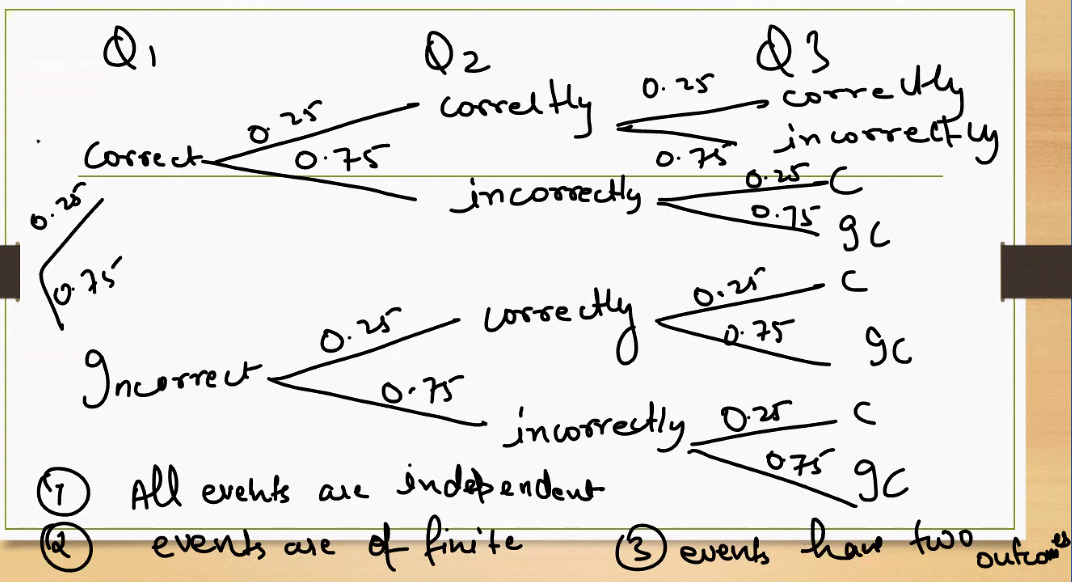 Q1 Q2 Q3
0.25 correctly
0.25 correctly
incorrectly
Correct 0.75 0.75
incorrectly 0.25 C
0.25 0.75 gC
0.75 0.25 C
0.25 correctly 0.75 gC
gncorrect 0.75
incorrectly 0.25 C
0.75 gC
① All events are independent
② events are of finite ③ events have two outcomes